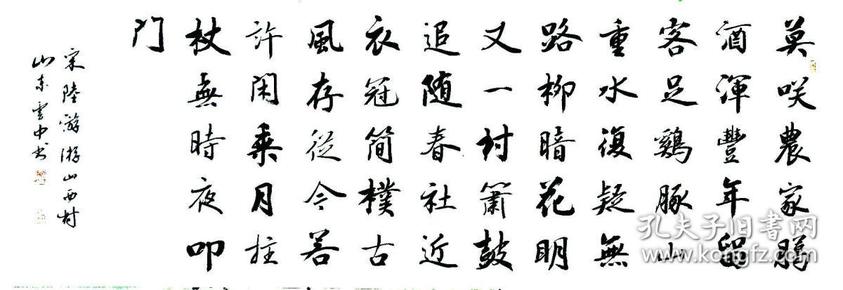 莫咲農家臘
酒渾豐年留
客足鷄豚山
重水復疑無
路柳暗花明
又一村簫鼓
追随春社近
衣冠简樸古
風存從今若
許閑乘月拄
杖無時夜叩
门
宋陸游游山西村
山东雲中书
孔夫子旧書网
book.kongfz.com